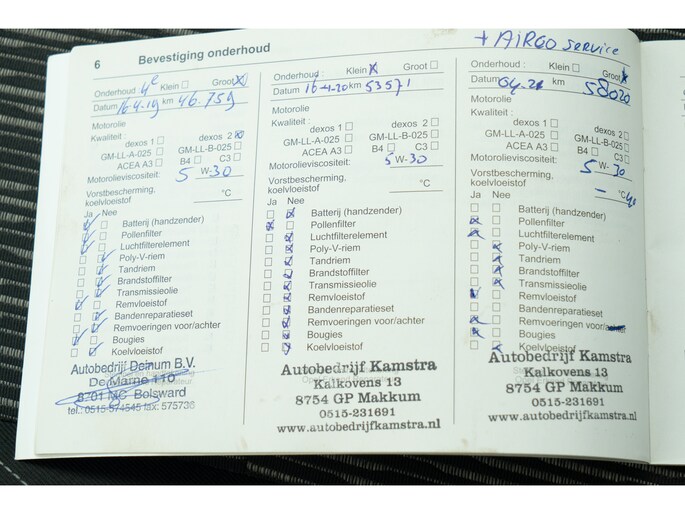 6 Bevestiging onderhoud
+ AIRCO service
Onderhoud: 4e Klein Groot
Datum 16-4-19 km 46.759
Motorolie
Kwaliteit:
dexos 1 dexos 2
GM-LL-A-025 GM-LL-B-025
ACEA A3 B4 C3
Motorolieviscositeit: 5 W-30
Vorstbescherming,
koelvloeistof °C
Ja Nee
Batterij (handzender)
Pollenfilter
Luchtfilterelement
Poly-V-riem
Tandriem
Brandstoffilter
Transmissieolie
Remvloeistof
Bandenreparatieset
Remvoeringen voor/achter
Bougies
Koelvloeistof
Autobedrijf Deinum B.V.
De Marne 110
8701 MC Bolsward
tel.: 0515-574545 fax: 575736
Onderhoud: Klein Groot
Datum 16-4-20 km 53571
Motorolie
Kwaliteit:
dexos 1 dexos 2
GM-LL-A-025 GM-LL-B-025
ACEA A3 B4 C3
Motorolieviscositeit: 5 W-30
Vorstbescherming,
koelvloeistof °C
Ja Nee
Batterij (handzender)
Pollenfilter
Luchtfilterelement
Poly-V-riem
Tandriem
Brandstoffilter
Transmissieolie
Remvloeistof
Bandenreparatieset
Remvoeringen voor/achter
Bougies
Koelvloeistof
Autobedrijf Kamstra
Kalkovens 13
8754 GP Makkum
0515-231691
www.autobedrijfkamstra.nl
Onderhoud: Klein Groot
Datum 04-21 km 58020
Motorolie
Kwaliteit:
dexos 1 dexos 2
GM-LL-A-025 GM-LL-B-025
ACEA A3 B4 C3
Motorolieviscositeit: 5 W-30
Vorstbescherming,
koelvloeistof - °C 40
Ja Nee
Batterij (handzender)
Pollenfilter
Luchtfilterelement
Poly-V-riem
Tandriem
Brandstoffilter
Transmissieolie
Remvloeistof
Bandenreparatieset
Remvoeringen voor/achter
Bougies
Koelvloeistof
Autobedrijf Kamstra
Kalkovens 13
8754 GP Makkum
0515-231691
www.autobedrijfkamstra.nl